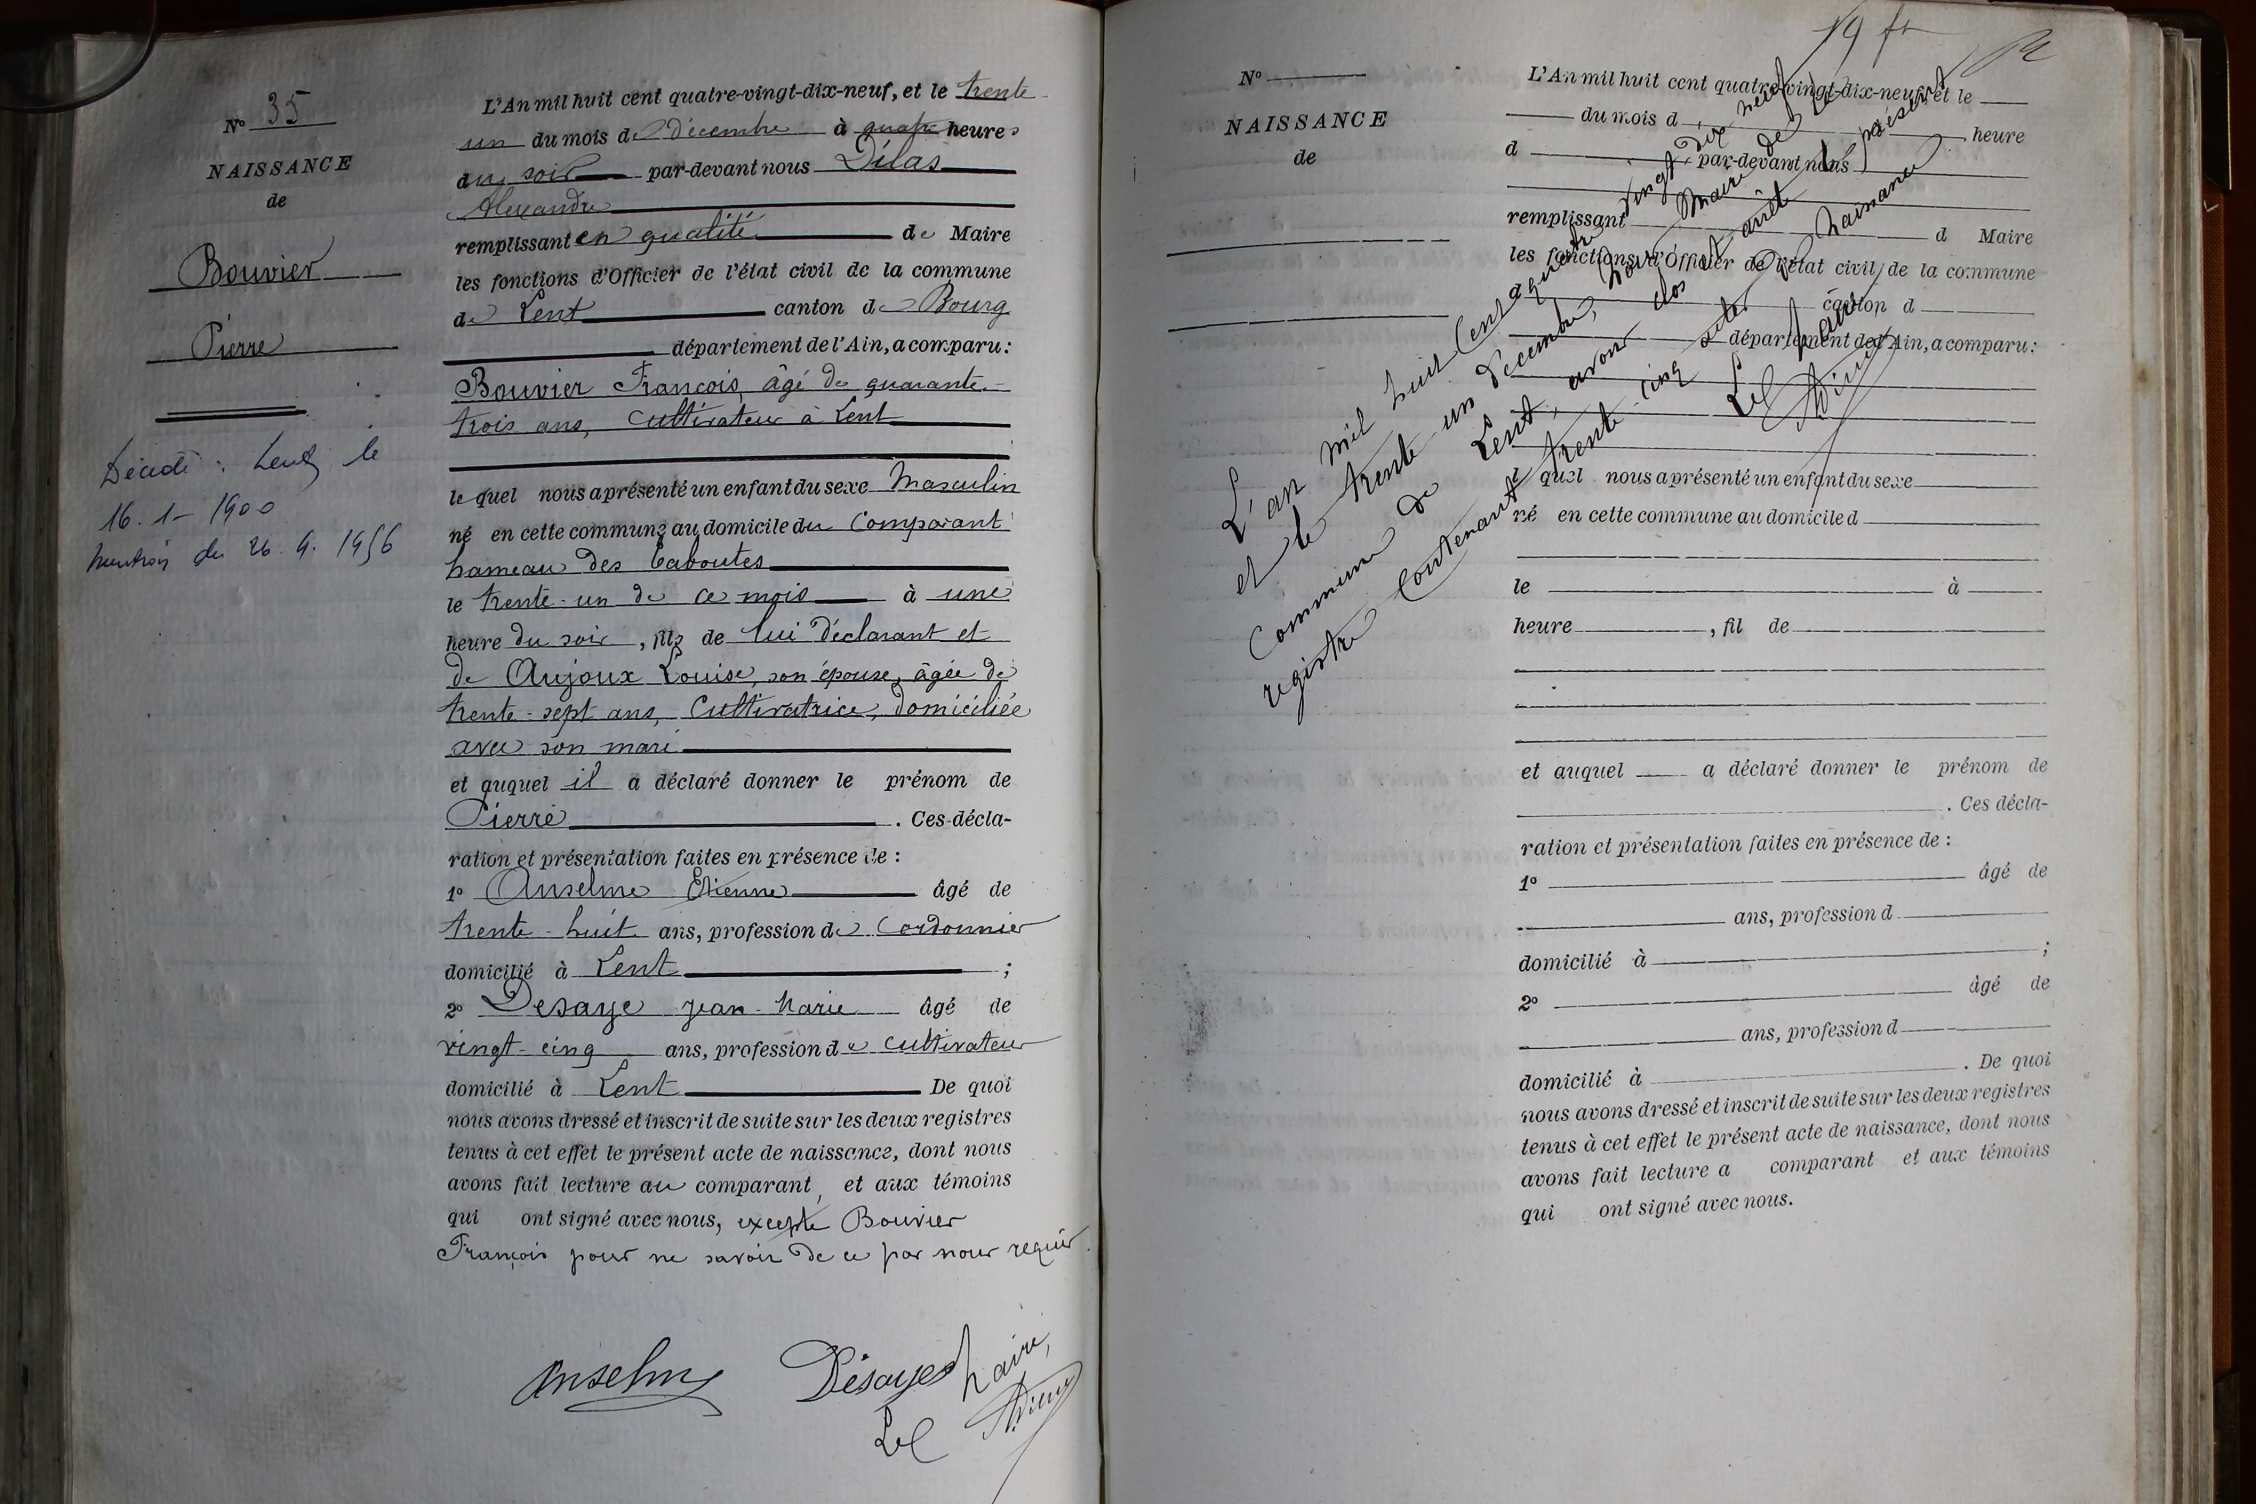 N° 35
NAISSANCE
de
Bouvier
Pierre
Décédé : Lent le
16.1-1900
mention du 26.9.1956
L'An mil huit cent quatre-vingt-dix-neuf, et le trente
un du mois de décembre à quatre heures
du soir par-devant nous Dilas
Alexandre
remplissant en qualité de Maire
les fonctions d'Officier de l'état civil de la commune
de Lent canton de Bourg
département de l'Ain, a comparu:
Bouvier François, âgé de quarante-
trois ans, cultivateur à Lent
le quel nous a présenté un enfant du sexe Masculin
né en cette commune au domicile du Comparant
hameau des Caboutes
le trente-un de ce mois à une
heure du soir, fils de lui déclarant et
de Anjoux Louise, son épouse, âgée de
trente-sept ans, Cultivatrice, domiciliée
avec son mari
et auquel il a déclaré donner le prénom de
Pierre. Ces décla-
ration et présentation faites en présence de :
1° Anselme Etienne âgé de
trente-huit ans, profession de Cordonnier
domicilié à Lent ;
2° Desaye Jean-Marie âgé de
vingt-cinq ans, profession de cultivateur
domicilié à Lent De quoi
nous avons dressé et inscrit de suite sur les deux registres
tenus à cet effet le présent acte de naissance, dont nous
avons fait lecture au comparant, et aux témoins
qui ont signé avec nous, excepté Bouvier
François pour ne savoir de ce par nous requis.
Anselme Désayes
Le Maire,
19 fr
N°
NAISSANCE
de
L'An mil huit cent quatre-vingt-dix-neuf, et le
du mois d heure
d par-devant nous
remplissant d Maire
les fonctions d'Officier de l'état civil de la commune
canton d
département de l'Ain, a comparu:
l quel nous a présenté un enfant du sexe
né en cette commune au domicile d
le à
heure , fil de
et auquel a déclaré donner le prénom de
. Ces décla-
ration et présentation faites en présence de :
1° âgé de
ans, profession d
domicilié à ;
2° âgé de
ans, profession d
domicilié à . De quoi
nous avons dressé et inscrit de suite sur les deux registres
tenus à cet effet le présent acte de naissance, dont nous
avons fait lecture a comparant et aux témoins
qui ont signé avec nous.
L'an mil huit cent quatre vingt dix neuf
et le trente un décembre, Nous Maire de la
Commune de Lent, avons clos et arrêté le présent
registre Contenant trente-cinq actes de Naissance
Le Maire